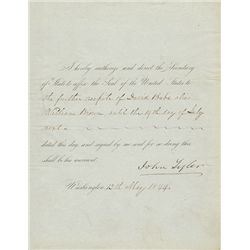 I hereby authorize and direct the Secretary
of State to affix the Seal of the United States to
the further respite of David Babe alias
William Brown until the 19th day of July
next
dated this day, and signed by me and for so doing this
shall be his warrant.
John Tyler
Washington 13th May 1844.